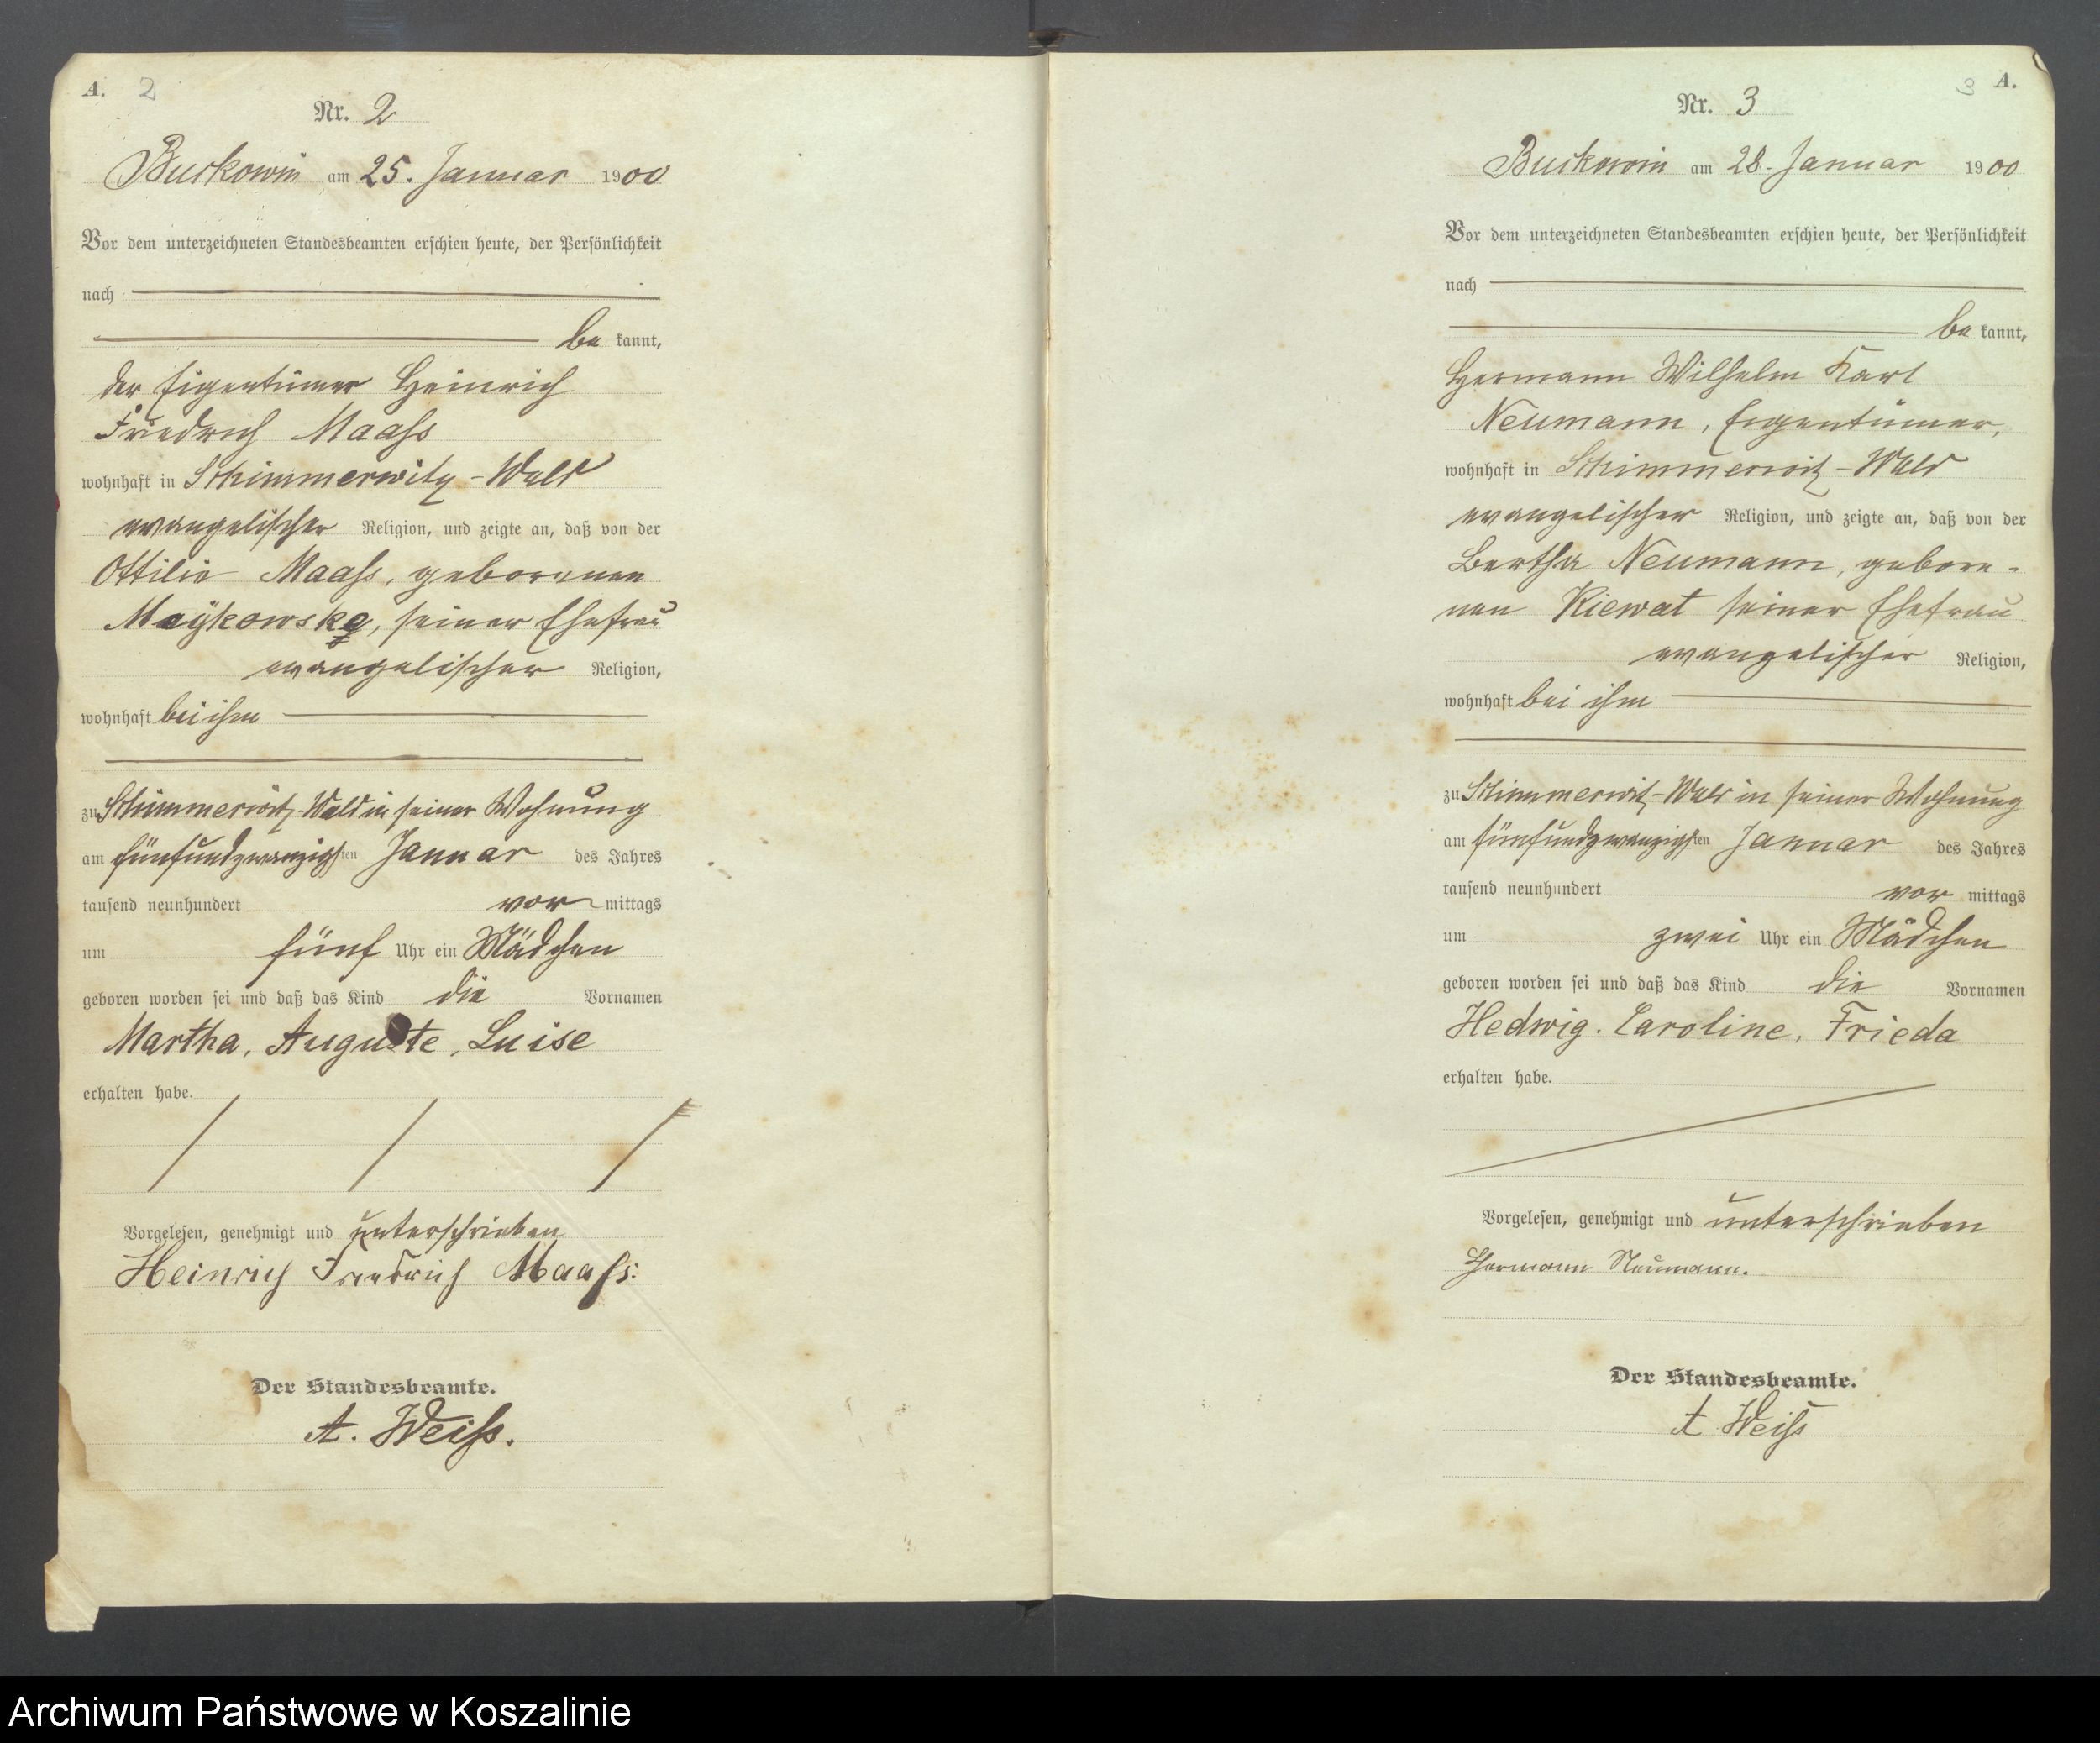 A. 2
Nr. 2
Buckowin am 25. Januar 1900
Vor dem unterzeichneten Standesbeamten erschien heute, der Persönlichkeit
nach
be kannt,
der Eigentümer Heinrich
Friedrich Maaß
wohnhaft in Schimmerwitz-Wald
evangelischer Religion, und zeigte an, daß von der
Ottilie Maaß, geborenen
seiner Ehefrau
evangelischer Religion,
wohnhaft bei ihm
zu Schimmerwitz-Wald in seiner Wohnung
am fünfundzwanzigsten Januar des Jahres
tausend neunhundert vor mittags
um fünf Uhr ein Mädchen
geboren worden sei und daß das Kind die Vornamen
Martha, Auguste, Luise
erhalten habe.
Vorgelesen, genehmigt und unterschrieben
Heinrich Friedrich Maaß.
Der Standesbeamte.
A. Weiß.
3 A.
Nr. 3
Buckowin am 28. Januar 1900
Vor dem unterzeichneten Standesbeamten erschien heute, der Persönlichkeit
nach
be kannt,
Hermann Wilhelm Karl
Neumann, Eigentümer,
wohnhaft in Schimmerwitz-Wald
evangelischer Religion, und zeigte an, daß von der
Bertha Neumann, gebore-
nen Kiewat seiner Ehefrau
evangelischer Religion,
wohnhaft bei ihm
zu Schimmerwitz-Wald in seiner Wohnung
am fünfundzwanzigsten Januar des Jahres
tausend neunhundert vor mittags
um zwei Uhr ein Mädchen
geboren worden sei und daß das Kind die Vornamen
Hedwig. Caroline, Frieda
erhalten habe.
Vorgelesen, genehmigt und unterschrieben
Hermann Neumann.
Der Standesbeamte.
A Weiß
Archiwum Państwowe w Koszalinie